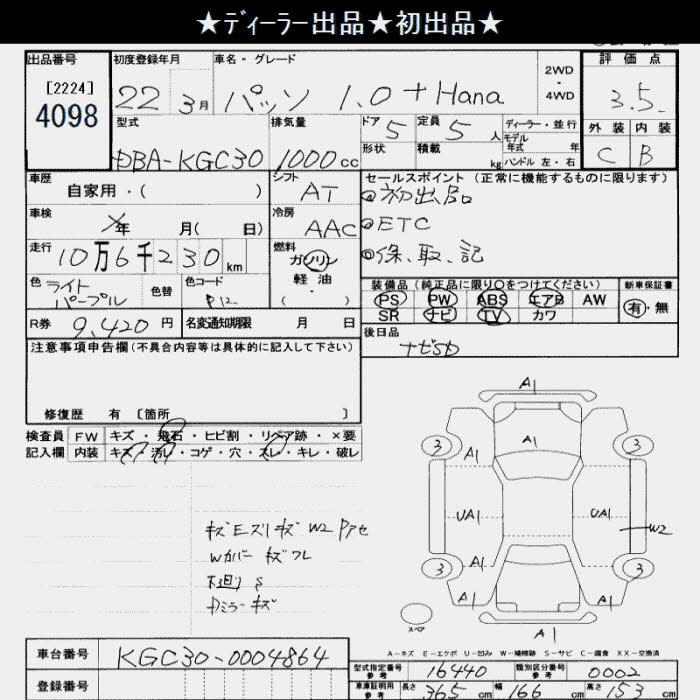 ★ディーラー出品★初出品★
出品番号
[2224]
4098
初度登録年月
22年3月
車名・グレード
パッソ 1.0 + Hana
2WD
4WD
評価点
3.5
外装 内装
C B
型式
DBA-KGC30
排気量
1000cc
ドア 5
形状
定員 5人
積載 kg
ディーラー・並行
モデル年式 年
ハンドル 左・右
車歴
自家用・( )
シフト
AT
セールスポイント (正常に機能するものに限ります)
初出品
ETC
保、取、記
車検
年 月( 日)
冷房
AAC
走行
10万6千230km
燃料
ガソリン
軽油
( ・ )
色 ライトパープル
色替
色コード
装備品 (純正品に限り〇をつけてください)
PS PW ABS エアB AW
SR ナビ TV カワ
新車保証書
有・無
R券 9,420円
名変通知期限 月 日
後日品
注意事項申告欄 (不具合内容等は具体的に記入して下さい)
修復歴 有 〔箇所 〕
検査員記入欄
FW キズ・飛石・ヒビ割・リペア跡・×要
内装 キズ・汚レ・コゲ・穴・スレ・キレ・破レ
A1
A1
3 3
A1
UA1 UA1
W2
A1 A1
3 3
A1 A1
A1
スペア
A-キズ E-エクボ U-凹み W-補修跡 S-サビ C-腐食 XX-交換済
車台番号 KGC30-0004864
登録番号
型式指定番号 参考 16440
類別区分番号 参考 0002
車庫証明用 参考 長さ 365cm 幅 166cm 高さ 153cm